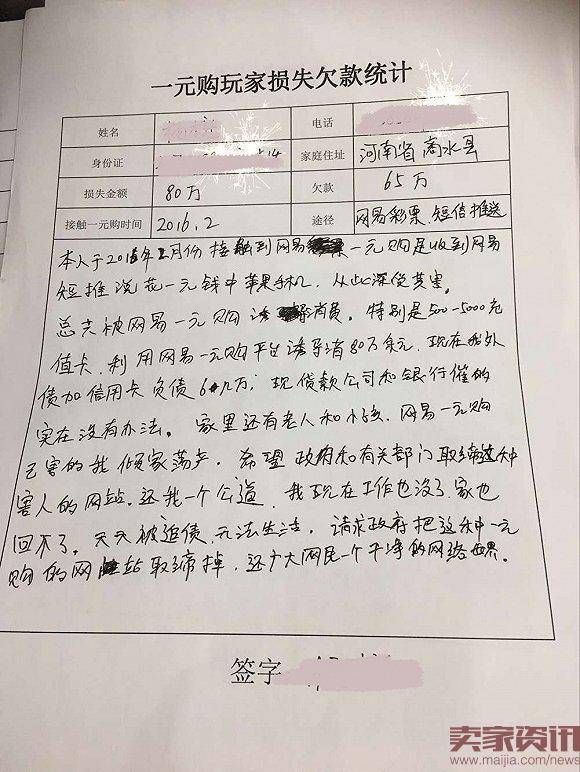 一元购玩家损失欠款统计
姓名 电话
身份证 14 家庭住址 河南省商水县
损失金额 80万 欠款 65万
接触一元购时间 2016.2 途径 网易彩票、短信推送
本人于2016年2月份接触到网易一元购是收到网易
短推说花一元钱中苹果手机，从此深受其害。
总共被网易一元购诱导消费。特别是500-5000充
值卡，利用网易一元购平台诱导消80万余元，现在我外
债加信用卡负债6几万；现贷款公司和银行催的
实在没有办法。家里还有老人和小孩，网易一元购
己害的我倾家荡产，希望政府和有关部门取缔这种
害人的网站，还我一个公道，我现在工作也没了，家也
回不了。天天被追债，无法生活，请求政府把这种一元
购的网站取缔掉，还广大网民一个干净的网络世界。
签字
卖家资讯
www.maijia.com/news